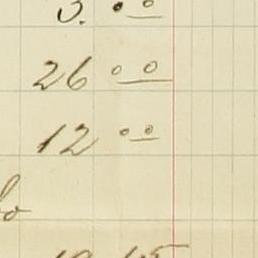 3. 00
26 00
12 00